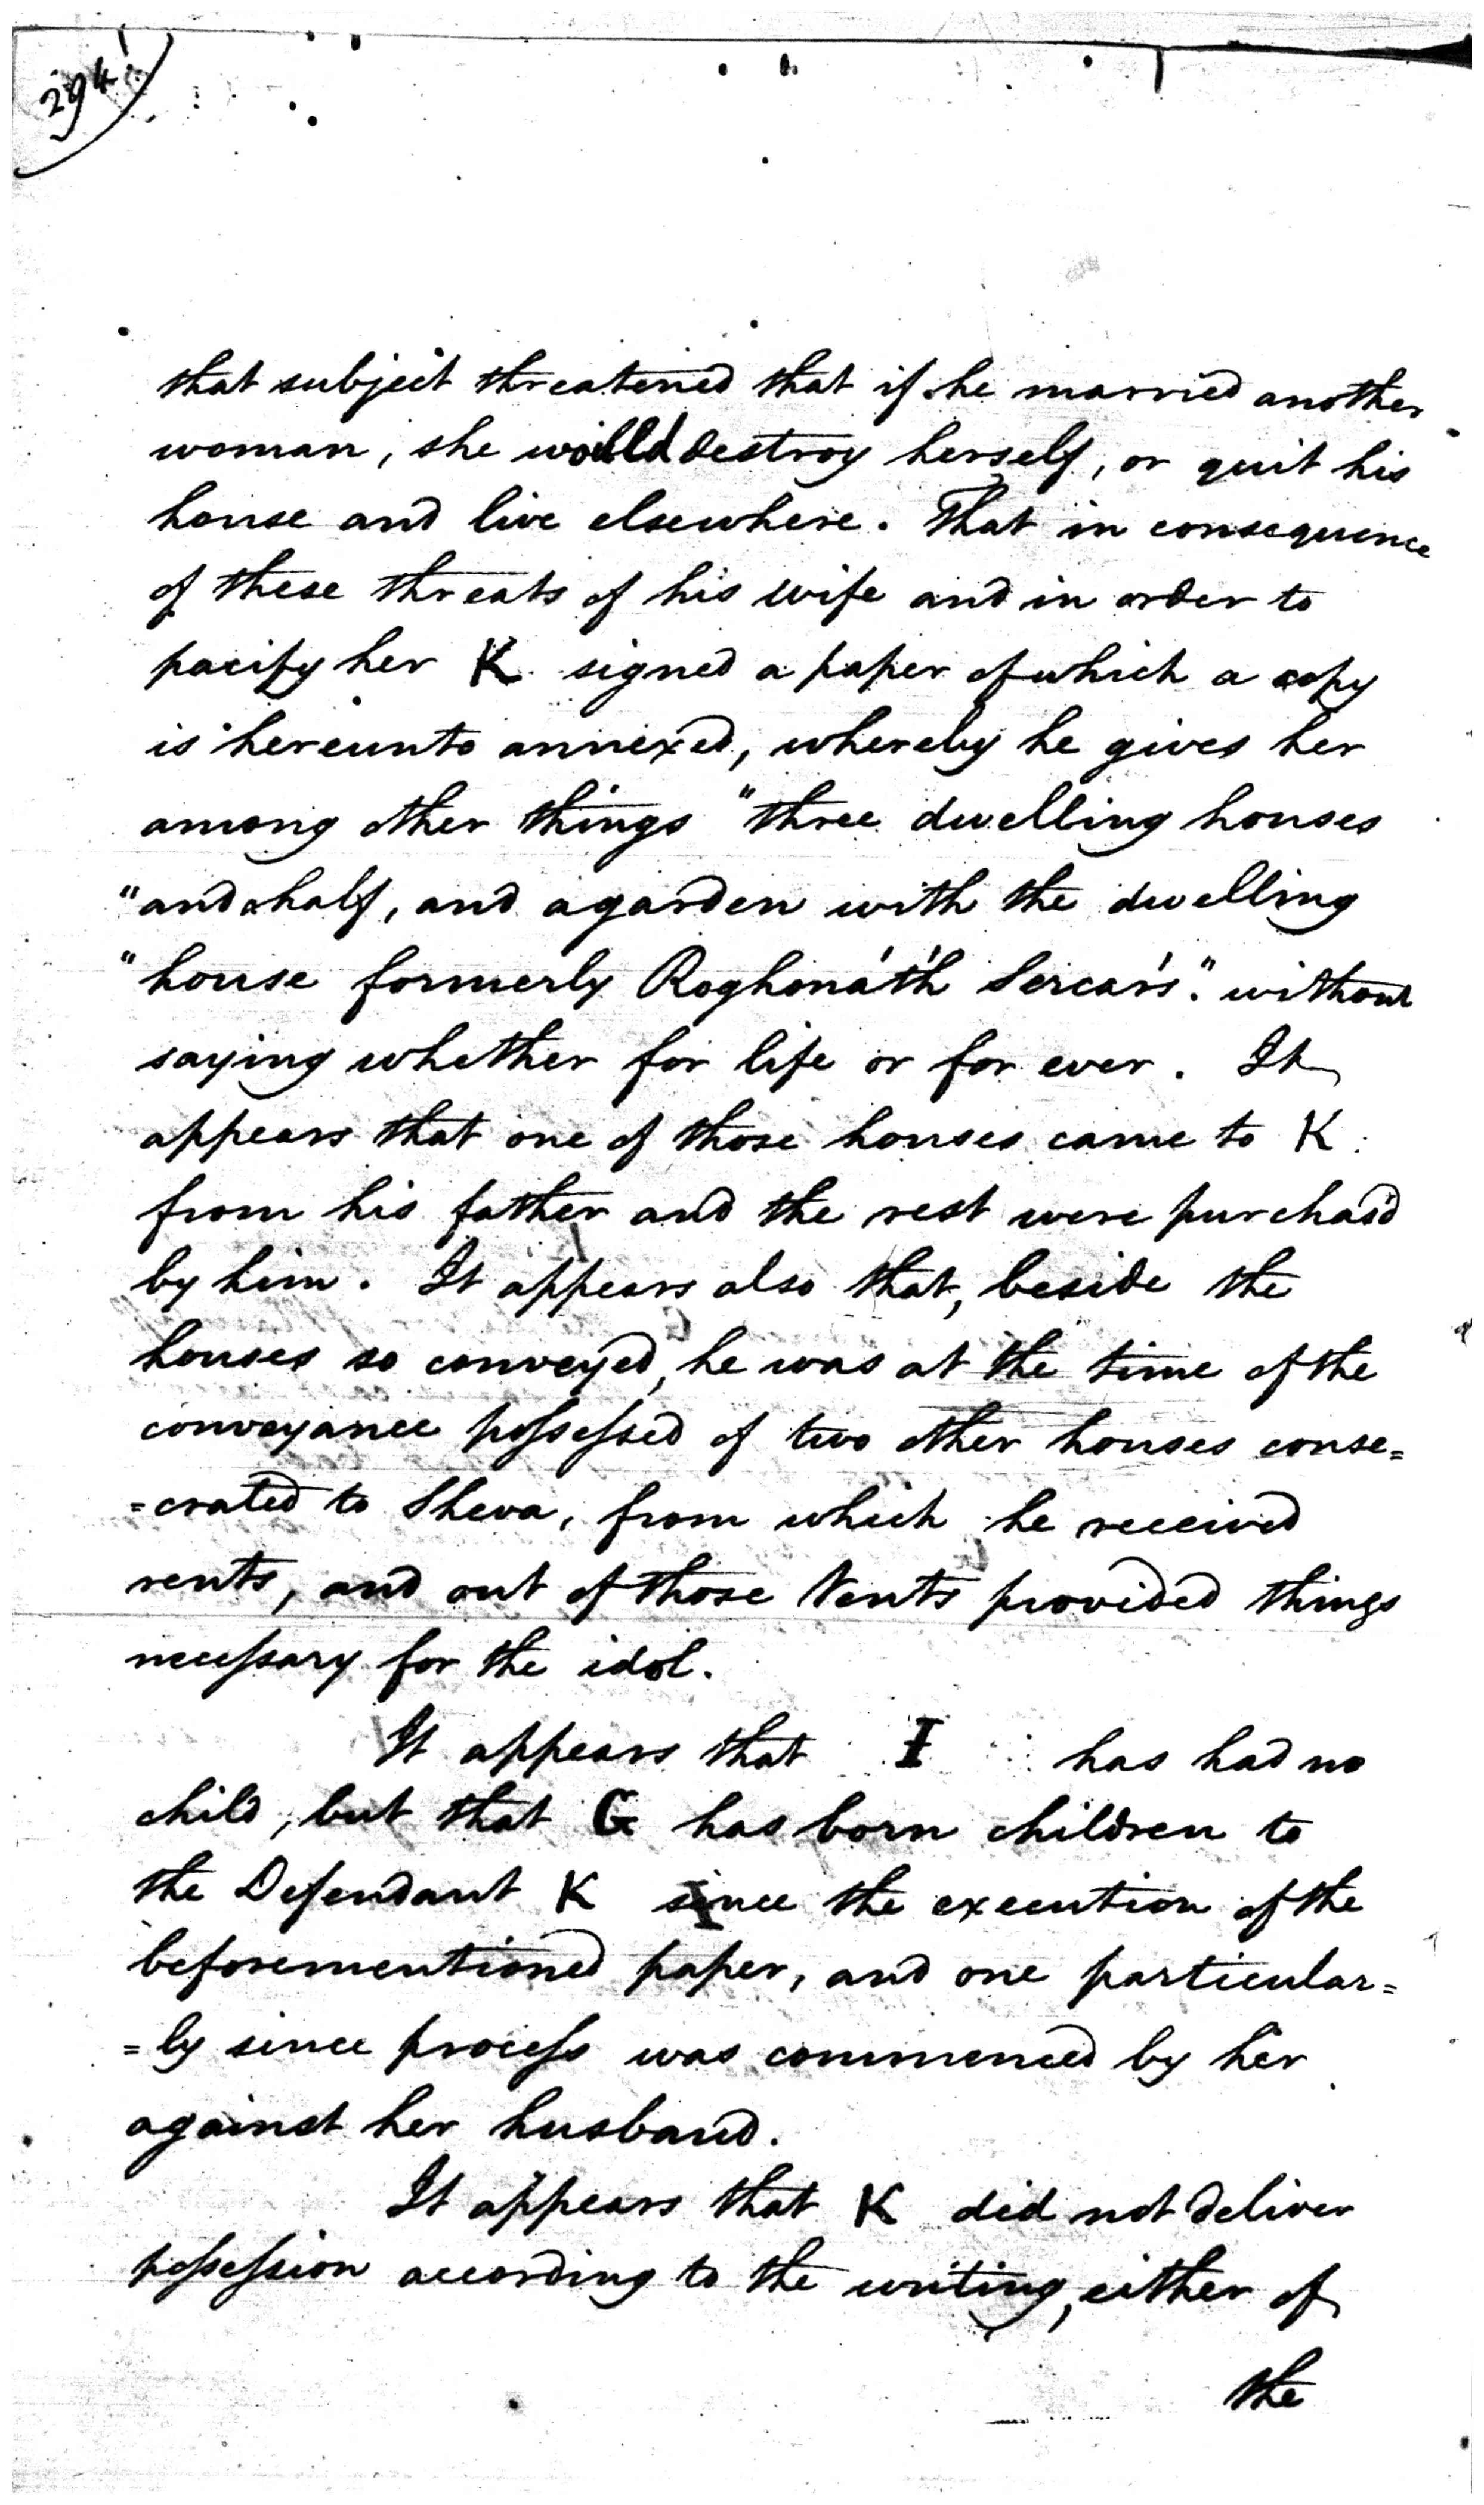 294
that subject threatened that if he married another
woman, she would destroy herself, or quit his
house and live elsewhere. That in consequence
of these threats of his wife and in order to
pacify her K signed a paper of which a copy
is hereunto annexed, whereby he gives her
among other things "three dwelling houses
"and a half, and a garden with the dwelling
"house formerly Roghonáth Sercar's." without
saying whether for life or for ever. It
appears that one of those houses came to K.
from his father and the rest were purchas'd
by him. It appears also that, beside the
houses so conveyed, he was at the time of the
conveyance possessed of two other houses conse=
=crated to Sheva, from which he received
rents, and out of those rents provided things
necessary for the idol.
It appears that I has had no
child, but that G has born children to
the Defendant K since the execution of the
beforementioned paper, and one particular=
=ly since process was commenced by her
against her husband.
It appears that K did not deliver
possession according to the writing, either of
the